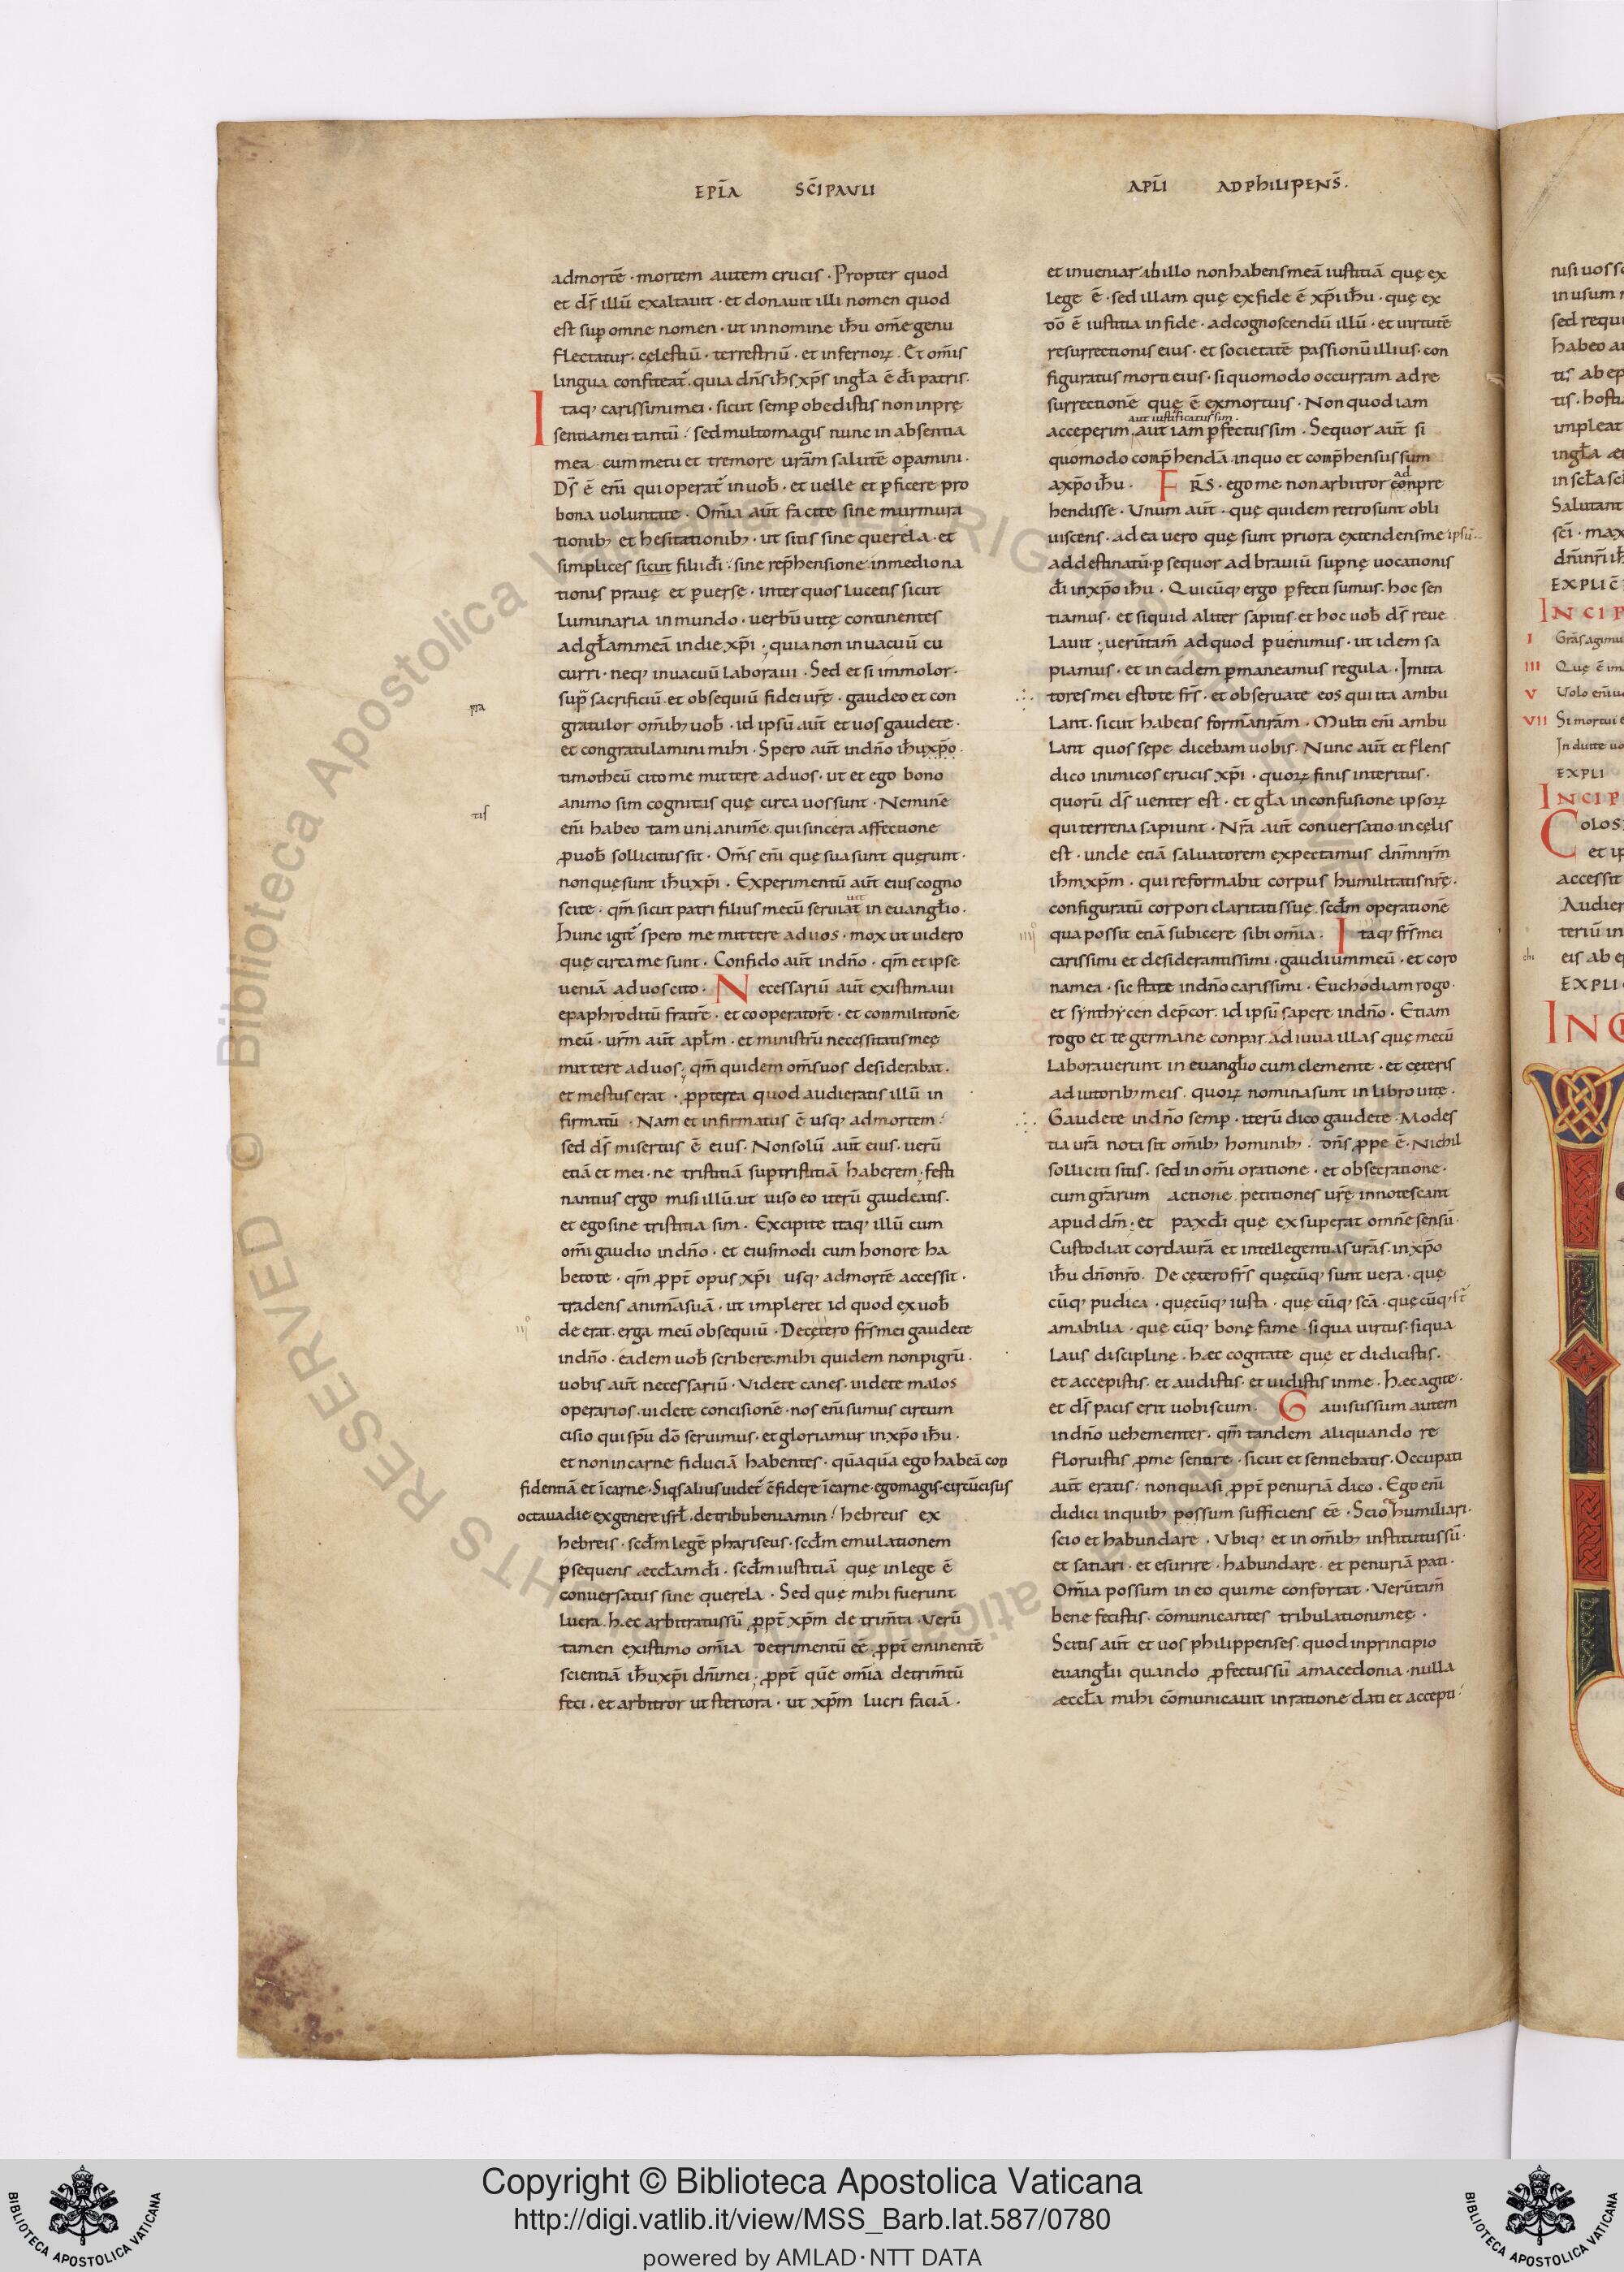 EPL̄A SC̄I PAVLI
APL̄I AD PHILIPENS̄.
admortē · mortem autem crucis · Propter quod
et ds̄ illū exaltauit · et donauit illi nomen quod
est sup̄ omne nomen · ut in nomine ih̄u om̄e genu
flectatur · cęlestiū · terrestriū · et infernoꝝ . Et om̄is
lingua confiteat̄ . quia dn̄s ih̄s xp̄s ingl̄a ē dī patris.
Itaq; carissimi mei · sicut semp̄ obedistis non inprę
sentia mei tantū : sed multo magis nunc in absentia
mea . cum metu et tremore ur̄am salutē op̄amini .
Ds̄ ē eni̅ qui operat̄ in uob̄ · et uelle et ꝑficere pro
bona uoluntate . Om̄ia aut̄ facite sine murmura
tionib; et hesitationib; · ut sitis sine querela · et
simplices sicut filii dī . sine rep̄hensione in medio na
tionis prauę et ꝑuerse · inter quos lucetis sicut
luminaria in mundo · uerbū uitę continentes
ad gl̄am meā in die xp̄i ; quia non in uacuū cu
curri · neq; in uacuū laboraui . Sed et si immolor ·
supra sacrificiū et obsequiū fidei ur̄ę · gaudeo et con
gratulor om̄ib; uob̄ · id ipsū aut̄ et uos gaudete ·
et congratulamini mihi . Spero aut̄ in dn̄o ih̄u xp̄o .
timotheū cito me mittere ad uos · ut et ego bono
animo sim cognitis quę circa uos sunt . Neminē
eni̅ habeo tam unianimē qui sincera affectione
ꝓ uob̄ sollicitus sit . Om̄s eni̅ quę sua sunt querunt ·
non quę sunt ih̄u xp̄i . Experimentū aut̄ eius cogno
scite · qm̄ sicut patri filius mecū seruiat in euangl̄io .
hunc igit̄ spero me mittere ad uos · mox ut uidero
quę circa me sunt . Confido aut̄ in dn̄o · qm̄ et ipse
ueniā ad uos cito . Necessariū aut̄ existimaui
epaphroditū fratrē · et cooperatorē · et conmilitonē
meū · ur̄m aut̄ apl̄m · et ministrū necessitatis meę
mittere ad uos ; qm̄ quidem om̄s uos desiderabat .
et mestus erat · ꝓpterea quod audieratis illū in
firmatū . Nam et infirmatus ē usq; ad mortem :
sed ds̄ misertus ē eius . Non solū aut̄ eius . uerū
etiā et mei · ne tristitiā sup̄ tristitiā haberem ; festi
nantius ergo misi illū . ut uiso eo iterū gaudeatis .
et ego sine tristitia sim . Excipite itaq; illū cum
om̄i gaudio in dn̄o · et eiusmodi cum honore ha
betote · qm̄ ꝓpt̄ opus xp̄i usq; ad mortē accessit ·
tradens animā suā · ut impleret id quod ex uob̄
de erat . erga meū obsequiū . De cętero frs̄ mei gaudete
in dn̄o · eadem uob̄ scribere . mihi quidem non pigrū .
uobis aut̄ necessariū . Videte canes . uidete malos
operarios . uidete concisionē · nos eni̅ sumus circum
cisio qui sp̄u dō seruimus · et gloriamur in xp̄o ih̄u ·
et non in carne fiduciā habentes · qūaqūa ego habeā con
fidentiā et ī carne · Siq̄s alius uidet̄ c̄fidere ī carne · ego magis . circūcisus
octaua die ex genere isrl̄ . de tribu beniamin : hebreus ex
hebreis · scd̄m legē phariseus · scd̄m emulationem
ꝑsequens æccl̄am dī . scd̄m iustitiā quę in lege ē
conuersatus sine querela . Sed quę mihi fuerunt
lucra . hæc arbitratus sū ꝓpt̄ xp̄m detrim̄ta . Verū
tamen existimo om̄ia detrimentū eē ꝓpt̄ eminentē
scientiā ih̄u xp̄i dn̄i mei ; ꝓpt̄ quē om̄ia detrim̄tū
feci . et arbitror ut stercora · ut xp̄m lucri faciā .
pra
tis
uit
iij°
et inueniar ibillo non habens meā iustitiā quę ex
lege ē · sed illam quę ex fide ē xp̄i ih̄u · quę ex
dō ē iustitia in fide · ad cognoscendū illū · et uirtutē
resurrectionis eius · et societatē passionū illius . con
figuratus morti eius · si quomodo occurram ad re
surrectionē quę ē ex mortuis . Non quod iam
aut iustificatus sim .
acceperim . aut iam ꝑfectus sim . Sequor aut̄ si
quomodo conp̄hendā in quo et conp̄hensus sum
ad
a xp̄o ih̄u . FRS̄ . ego me non arbitror conpre
hendisse . Unum aut̄ · quę quidem retro sunt obli
uiscens . ad ea uero quę sunt priora extendens me ipsū
ad destinatū ꝑsequor ad brauiū sup̄nę uocationis
dī in xp̄o ih̄u . Quicūq; ergo ꝑfecti sumus . hoc sen
tiamus . et siquid aliter sapitis et hoc uob̄ ds̄ reue
lauit ; uerūtam̄ ad quod ꝑuenimus · ut idem sa
piamus · et in eadem ꝑmaneamus regula . Imita
tores mei estote frs̄ . et obseruate eos qui ita ambu
lant . sicut habetis formā nrām . Multi eni̅ ambu
lant quos sepe dicebam uobis . Nunc aut̄ et flens
dico inimicos crucis xp̄i · quoꝝ finis interitus .
quorū ds̄ uenter est . et gl̄a in confusione ipsoꝝ
qui terrena sapiunt . Nrā aut̄ conuersatio in cęlis
est . unde etiā saluatorem expectamus dn̄m nrm̄
ih̄m xp̄m . qui reformabit corpus humilitatis nr̄ę .
configuratū corpori claritatis suę . scd̄m operationē
iiij°
qua possit etiā subicere sibi om̄ia . Itaq; frs̄ mei
carissimi et desiderantissimi . gaudium meū . et coro
na mea . sic state in dn̄o carissimi . Euchodiam rogo .
et synthycen dep̄cor . id ipsū sapere in dn̄o . Etiam
rogo et te germane conpar . adiuua illas quę mecū
laborauerunt in euangl̄io cum clemente · et cęteris
adiutorib; meis . quoꝝ nomina sunt in libro uitę .
Gaudete in dn̄o semp̄ . iterū dico gaudete . Modes
tia ur̄a nota sit om̄ib; hominib; . dn̄s ꝓpe ē . Nichil
solliciti sitis . sed in om̄i oratione . et obsecratione .
cum grārum actione petitiones ur̄ę innotescant
apud dm̄ . et pax dī quę exsuperat omnē sensū .
Custodiat corda urā et intellegentias urās . in xp̄o
ih̄u dn̄o nrō . De cętero frs̄ quęcūq; sunt uera . quę
cūq; pudica . quęcūq; iusta . quę cūq; scā . quę cūq;
amabilia . quę cūq; bonę fame . siqua uirtus . siqua
laus disciplinę . hæc cogitate quę et didicistis .
et accepistis . et audistis . et uidistis in me . hæc agite .
et ds̄ pacis erit uobiscum . Gauisus sum autem
in dn̄o uehementer . qm̄ tandem aliquando re
floruistis ꝓ me sentire . sicut et sentiebatis . Occupati
aut̄ eratis : non quasi ꝓpt̄ penuriā dico . Ego eni̅
didici in quib; possum sufficiens eē . Scio humiliari .
scio et habundare . Vbiq; et in om̄ib; institutus sū .
et satiari . et esurire . habundare et penuriā pati .
Om̄ia possum in eo qui me confortat . Verūtam̄
bene fecistis . cōmunicantes tribulationi meę .
Scitis aut̄ et uos philippenses . quod in principio
euangl̄ii quando ꝓfectus sū a macedonia . nulla
æccl̄a mihi cōmunicauit in ratione dati et accepti
nisi uos
in usum
sed requi
habeo
tis ab ep
tis . hosti
impleat
in gl̄a
in scl̄a
Salutant
sci̅ . max
dn̄i nr̄i
EXPLIC̄
INCIP
I Grās agimu
III Quę ē
V Volo eni̅
VII Si mortui
Induite uo
EXPLI
INCIP
COLOS
et ip
accessit
Audier
teriū in
eis ab
EXPLIC
INC
© Biblioteca Apostolica Vaticana
RIGHTS RESERVED
Copyright © Biblioteca Apostolica Vaticana
http://digi.vatlib.it/view/MSS_Barb.lat.587/0780
powered by AMLAD·NTT DATA
BIBLIOTECA APOSTOLICA VATICANA
BIBLIOTECA APOSTOLICA VATICANA